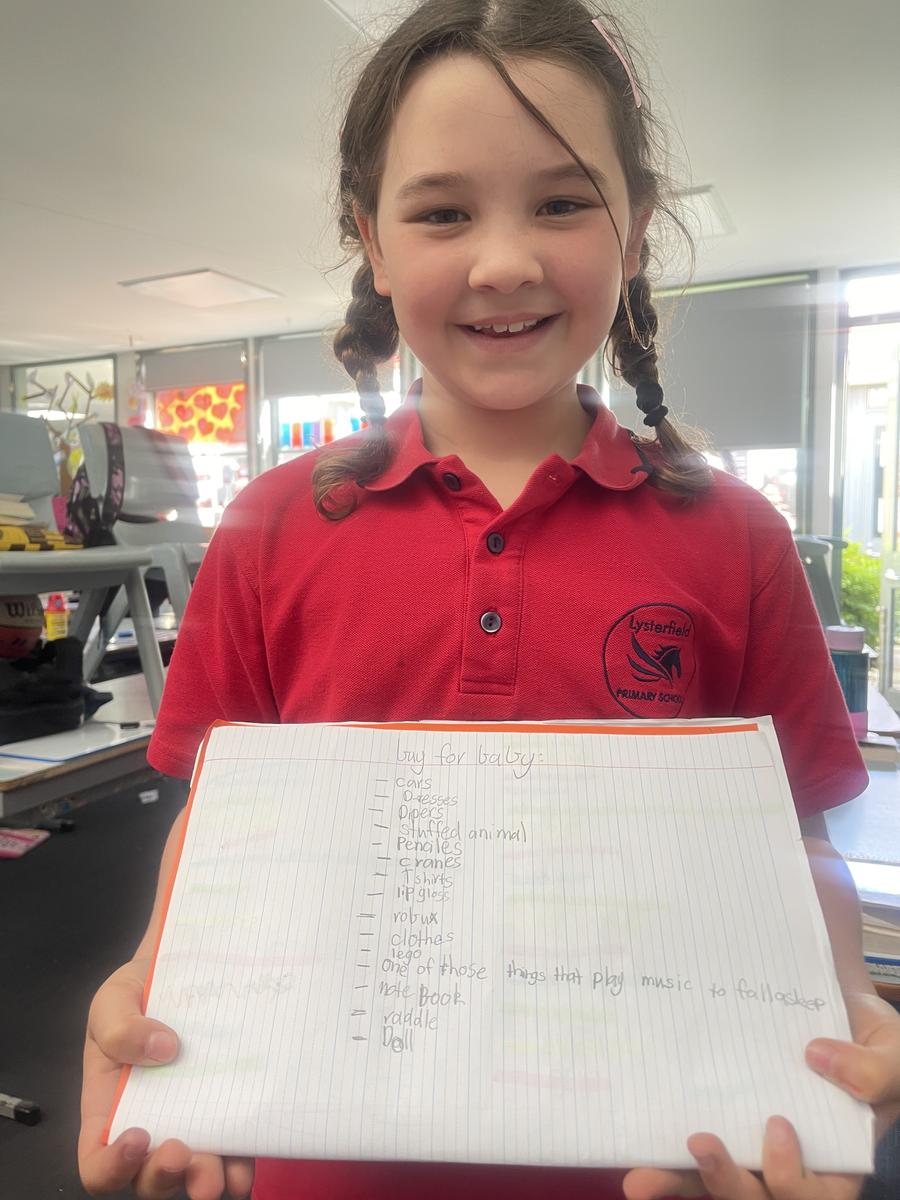 Lysterfield
PRIMARY SCHOOL
buy for baby:
- cars
- Dresses
- Dipers
- stuffed animal
- Penciles
- cranes
- Tshirts
- lip gloss
- robux
- clothes
- lego
- One of those things that play music to fall asleep
- note Book
- raddle
- Doll